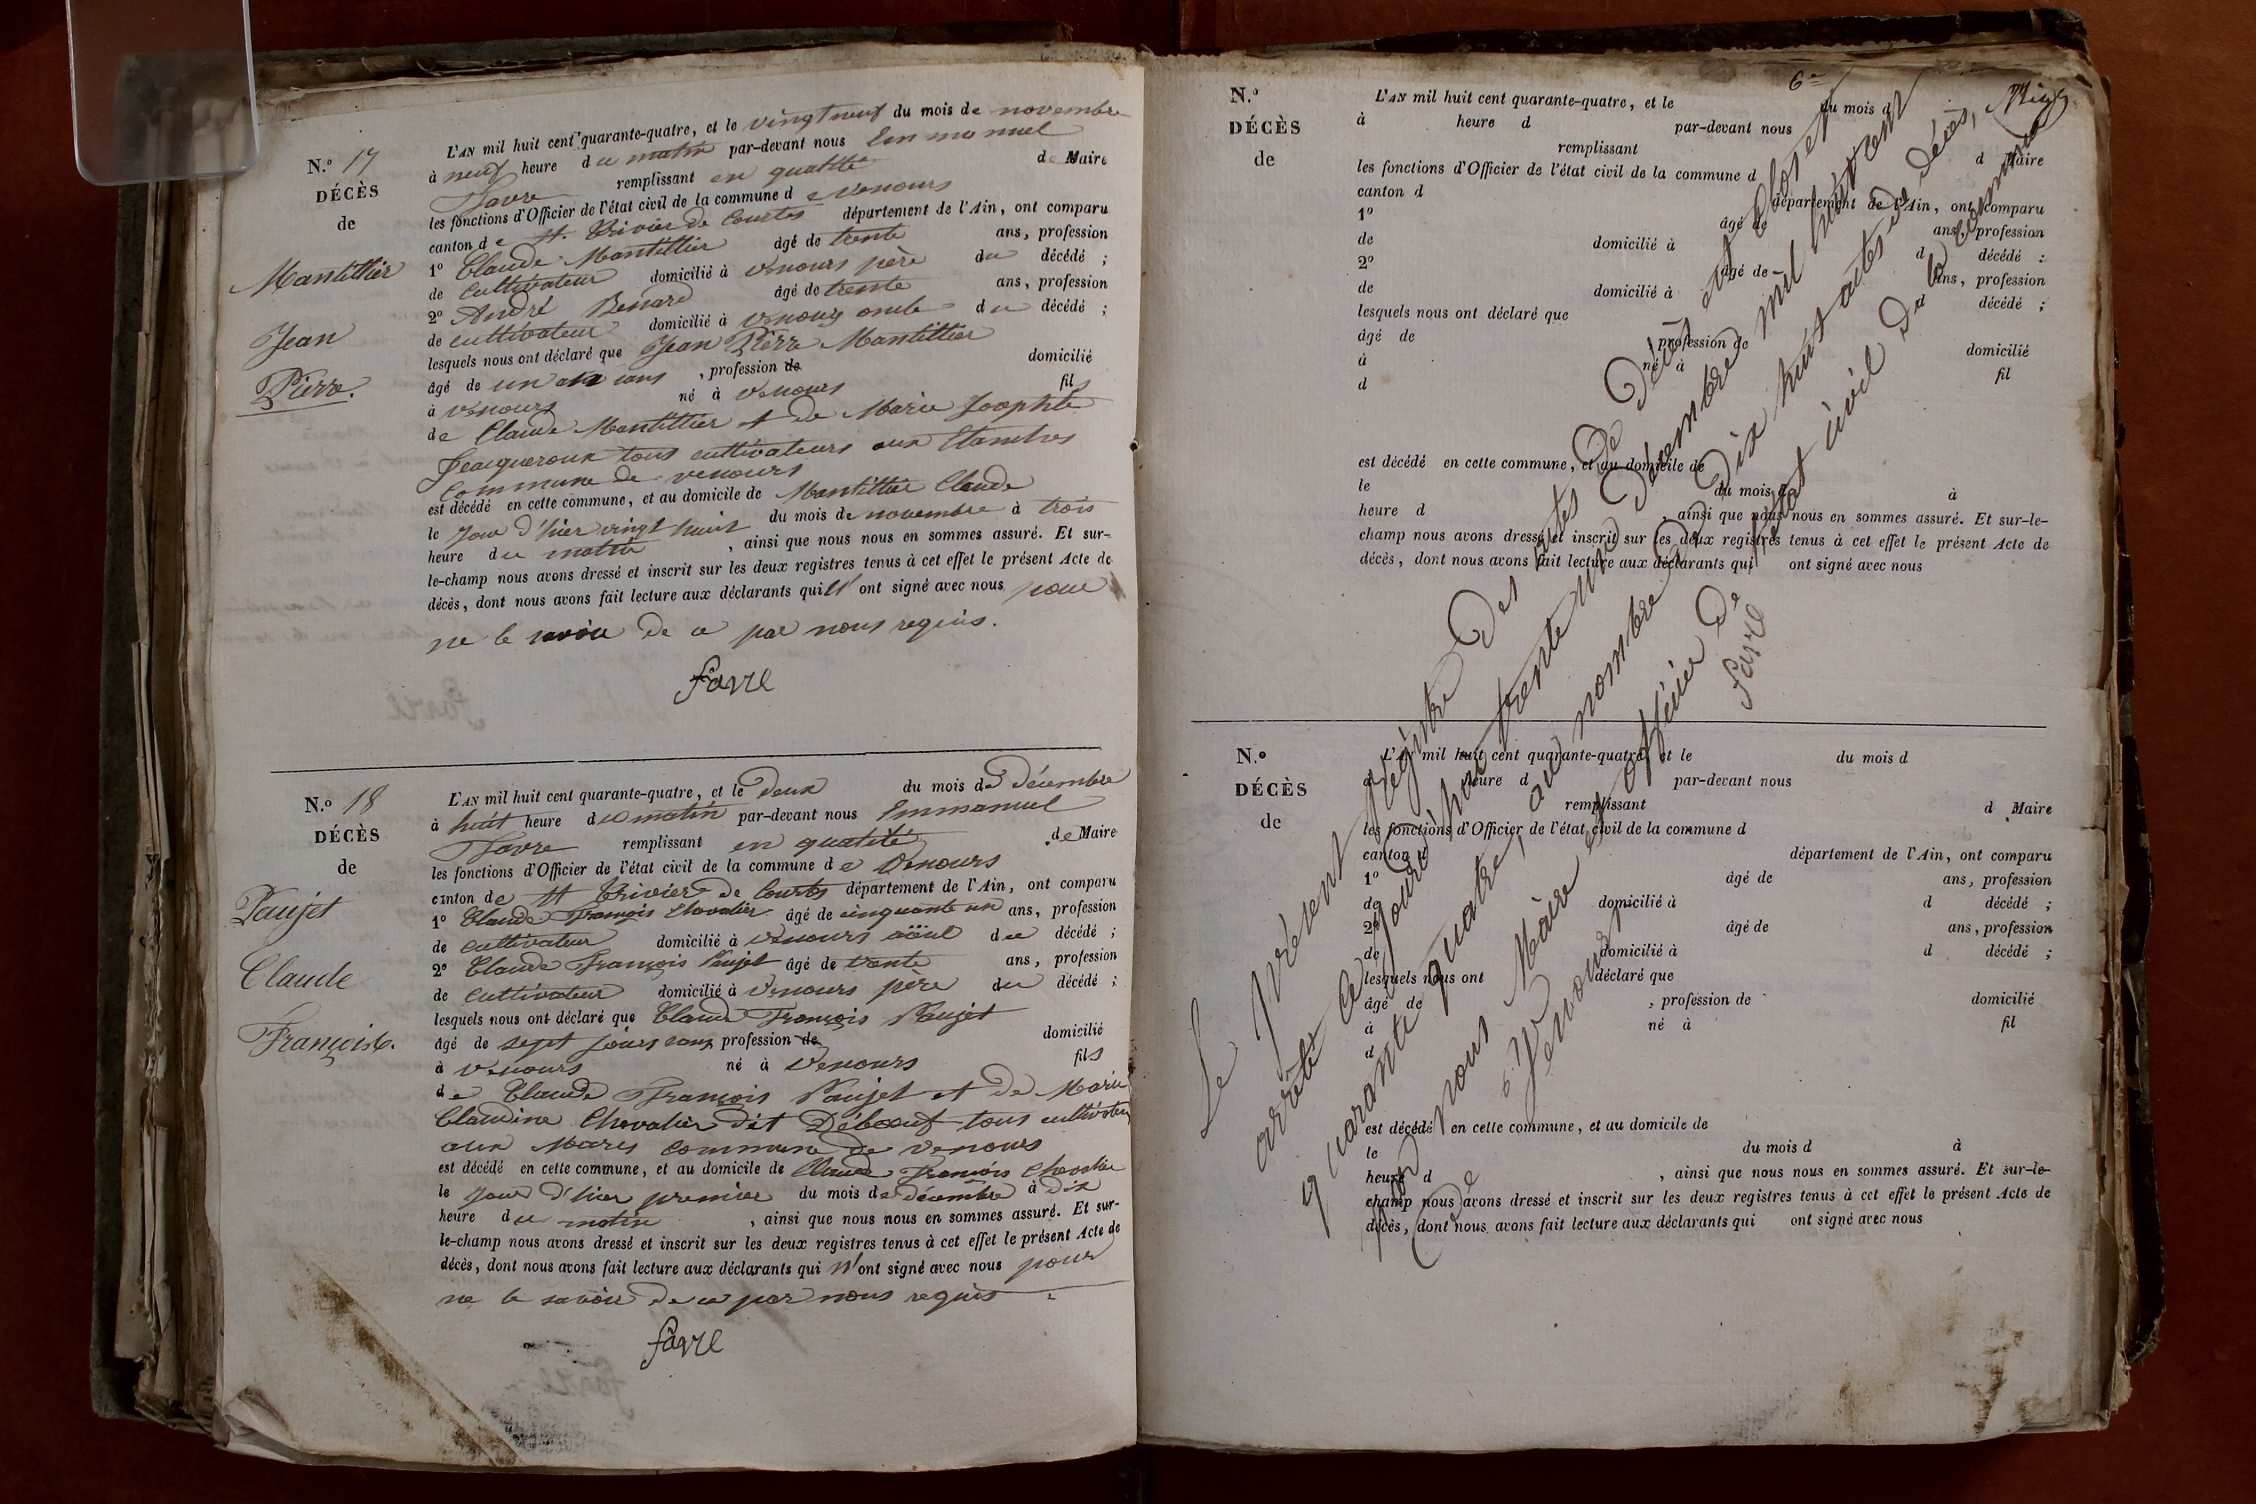 N.º 17
DÉCÈS
de
Mantillier
Jean
Pierre.
L'AN mil huit cent quarante-quatre, et le vingt neuf du mois de novembre
à neuf heure du matin par-devant nous Emmanuel
Favre remplissant en qualité de Maire
les fonctions d'Officier de l'état civil de la commune de Vernours
canton de St. Trivier de Courtes département de l'Ain, ont comparu
1º Claude Mantillier âgé de trente ans, profession
de cultivateur domicilié à Vernours père du décédé ;
2º André Benard âgé de trente ans, profession
de cultivateur domicilié à Vernours oncle du décédé ;
lesquels nous ont déclaré que Jean Pierre Mantillier
âgé de un an sans , profession de domicilié
à Vernours né à Vernours fils
de Claude Mantillier et de Marie Josephte
tous cultivateurs aux
commune de Vernours
est décédé en cette commune, et au domicile de Mantillier Claude
le jour d'hier vingt huit du mois de novembre à trois
heure du matin , ainsi que nous nous en sommes assuré. Et sur-
le-champ nous avons dressé et inscrit sur les deux registres tenus à cet effet le présent Acte de
décès, dont nous avons fait lecture aux déclarants qui n'ont signé avec nous pour
ne le savoir de ce par nous requis.
favre
N.º 18
DÉCÈS
de
Paujet
Claude
François.
L'AN mil huit cent quarante-quatre, et le deux du mois de Décembre
à huit heure du matin par-devant nous Emmanuel
Favre remplissant en qualité de Maire
les fonctions d'Officier de l'état civil de la commune de Vernours
canton de St Trivier de Courtes département de l'Ain, ont comparu
1º Claude François Chevalier âgé de cinquante un ans, profession
de cultivateur domicilié à Vernours aïeul du décédé ;
2º Claude François Paujet âgé de trente ans, profession
de cultivateur domicilié à Vernours père du décédé ;
lesquels nous ont déclaré que Claude François Paujet
âgé de sept jours sans profession de domicilié
à Vernours né à Vernours fils
de Claude François Paujet et de Marie
Claudine Chevalier dit Débœuf tous cultivateurs
aux Mares commune de Vernours
est décédé en cette commune, et au domicile de Claude François Chevalier
le jour d'hier premier du mois de décembre à dix
heure du matin , ainsi que nous nous en sommes assuré. Et sur-
le-champ nous avons dressé et inscrit sur les deux registres tenus à cet effet le présent Acte de
décès, dont nous avons fait lecture aux déclarants qui n'ont signé avec nous pour
ne le savoir de ce par nous requis.
favre
6e
N.º
DÉCÈS
de
L'AN mil huit cent quarante-quatre, et le du mois d
à heure d par-devant nous
remplissant d Maire
les fonctions d'Officier de l'état civil de la commune d
canton d département de l'Ain, ont comparu
1º âgé de ans, profession
de domicilié à d décédé ;
2º âgé de ans, profession
de domicilié à d décédé ;
lesquels nous ont déclaré que
âgé de profession de domicilié
à né à fil
d
est décédé en cette commune, et au domicile de
le du mois d à
heure d , ainsi que nous nous en sommes assuré. Et sur-le-
champ nous avons dressé et inscrit sur les deux registres tenus à cet effet le présent Acte de
décès, dont nous avons fait lecture aux déclarants qui ont signé avec nous
N.º
DÉCÈS
de
L'AN mil huit cent quarante-quatre, et le du mois d
à heure d par-devant nous
remplissant d Maire
les fonctions d'Officier de l'état civil de la commune d
canton d département de l'Ain, ont comparu
1º âgé de ans, profession
de domicilié à d décédé ;
2º âgé de ans, profession
de domicilié à d décédé ;
lesquels nous ont déclaré que
âgé de , profession de domicilié
à né à fil
d
est décédé en cette commune, et au domicile de
le du mois d à
heure d , ainsi que nous nous en sommes assuré. Et sur-le-
champ nous avons dressé et inscrit sur les deux registres tenus à cet effet le présent Acte de
décès, dont nous avons fait lecture aux déclarants qui ont signé avec nous
Le présent Régistre des actes de Décès est clos et
arrêté ce jourd'hui trente un Décembre mil huit cent
quarante quatre, au nombre de Dix huit actes de décès,
par nous Maire et officier de l'état civil de la commune
de Vernours.
favre